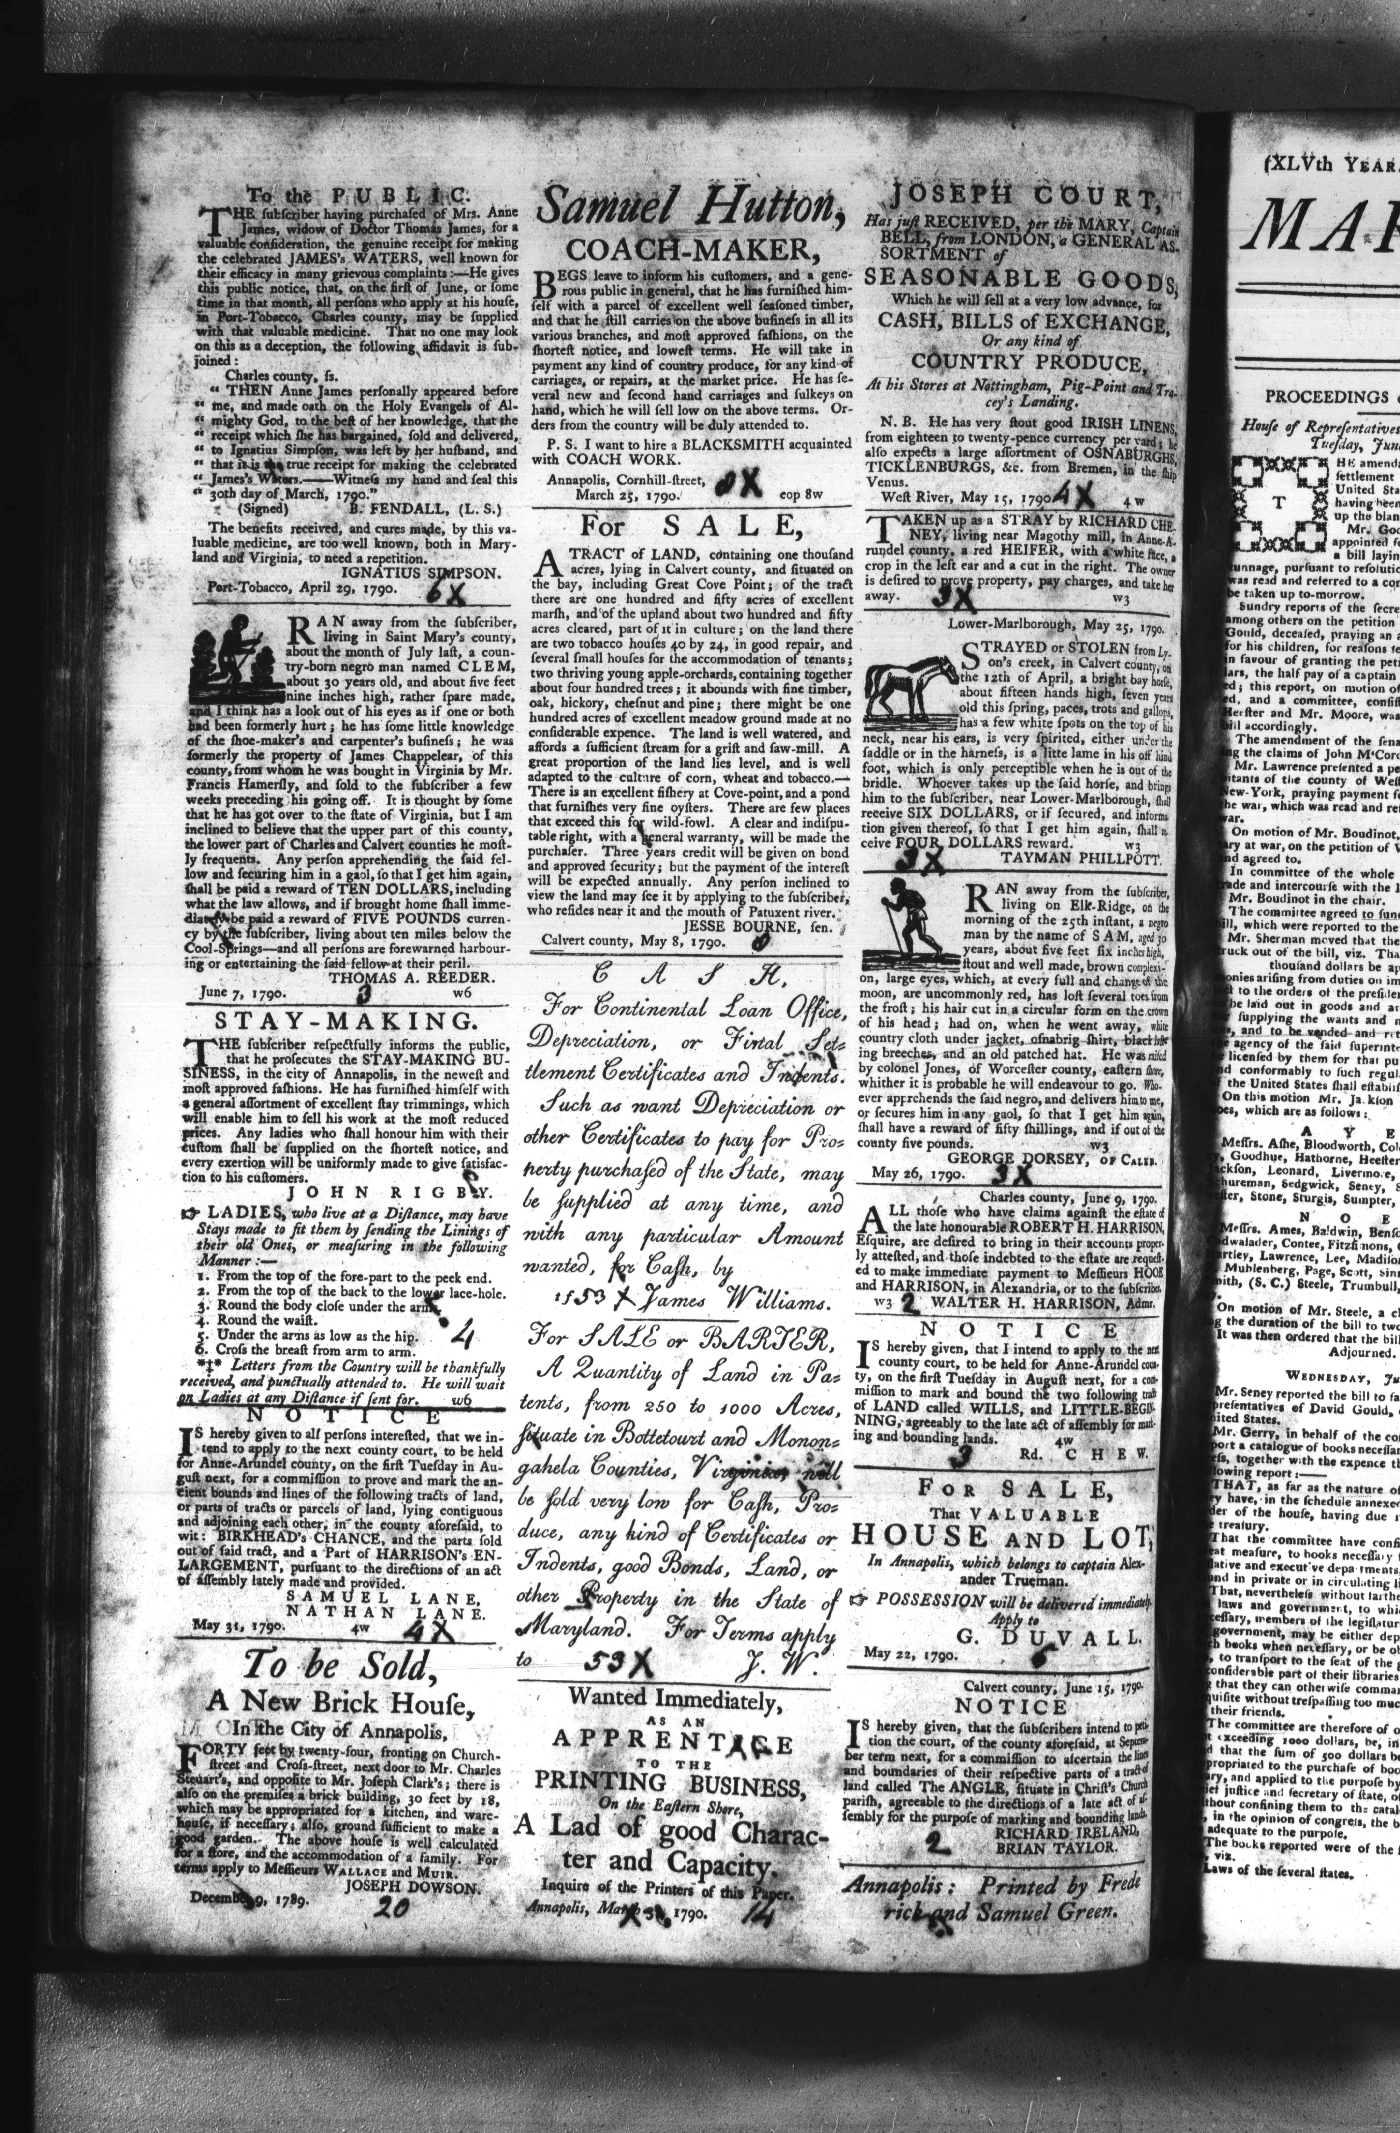 To the PUBLIC.
THE ſubſcriber having purchaſed of Mrs. Anne
James, widow of Doctor Thomas James, for a
valuable conſideration, the genuine receipt for making
the celebrated JAMES's WATERS, well known for
their efficacy in many grievous complaints:—He gives
this public notice, that, on the firſt of June, or ſome
time in that month, all perſons who apply at his houſe,
in Port-Tobacco, Charles county, may be ſupplied
with that valuable medicine. That no one may look
on this as a deception, the following affidavit is ſub-
joined:
Charles county, ſs.
“ THEN Anne James perſonally appeared before
“ me, and made oath on the Holy Evangels of Al-
“ mighty God, to the beſt of her knowledge, that the
“ receipt which ſhe has bargained, ſold and delivered,
“ to Ignatius Simpſon, was left by her huſband, and
“ that it is the true receipt for making the celebrated
“ James's Waters.——Witneſs my hand and ſeal this
“ 30th day of March, 1790.”
(Signed) B. FENDALL, (L. S.)
The benefits received, and cures made, by this va-
luable medicine, are too well known, both in Mary-
land and Virginia, to need a repetition.
IGNATIUS SIMPSON.
Port-Tobacco, April 29, 1790. 6X
RAN away from the ſubſcriber,
living in Saint Mary's county,
about the month of July laſt, a coun-
try-born negro man named CLEM,
about 30 years old, and about five feet
nine inches high, rather ſpare made,
and I think has a look out of his eyes as if one or both
had been formerly hurt; he has ſome little knowledge
of the ſhoe-maker's and carpenter's buſineſs; he was
formerly the property of James Chappelear, of this
county, from whom he was bought in Virginia by Mr.
Francis Hamerſly, and ſold to the ſubſcriber a few
weeks preceding his going off. It is thought by ſome
that he has got over to the ſtate of Virginia, but I am
inclined to believe that the upper part of this county,
the lower part of Charles and Calvert counties he moſt-
ly frequents. Any perſon apprehending the ſaid fel-
low and ſecuring him in a gaol, ſo that I get him again,
ſhall be paid a reward of TEN DOLLARS, including
what the law allows, and if brought home ſhall imme-
diately be paid a reward of FIVE POUNDS curren-
cy by the ſubſcriber, living about ten miles below the
Cool-Springs—and all perſons are forewarned harbour-
ing or entertaining the ſaid fellow at their peril.
THOMAS A. REEDER.
June 7, 1790. 3 w6
STAY-MAKING.
THE ſubſcriber reſpectfully informs the public,
that he proſecutes the STAY-MAKING BU-
SINESS, in the city of Annapolis, in the neweſt and
moſt approved faſhions. He has furniſhed himſelf with
a general aſſortment of excellent ſtay trimmings, which
will enable him to ſell his work at the moſt reduced
prices. Any ladies who ſhall honour him with their
cuſtom ſhall be ſupplied on the ſhorteſt notice, and
every exertion will be uniformly made to give ſatisfac-
tion to his cuſtomers.
JOHN RIGBY.
☞ LADIES, who live at a Diſtance, may have
Stays made to fit them by ſending the Linings of
their old Ones, or meaſuring in the following
Manner:—
1. From the top of the fore-part to the peek end.
2. From the top of the back to the lower lace-hole.
3. Round the body cloſe under the arms.
4. Round the waiſt.
5. Under the arms as low as the hip. 4
6. Croſs the breaſt from arm to arm.
*‡* Letters from the Country will be thankfully
received, and punctually attended to. He will wait
on Ladies at any Diſtance if ſent for. w6
NOTICE
IS hereby given to all perſons intereſted, that we in-
tend to apply to the next county court, to be held
for Anne-Arundel county, on the firſt Tueſday in Au-
guſt next, for a commiſſion to prove and mark the an-
cient bounds and lines of the following tracts of land,
or parts of tracts or parcels of land, lying contiguous
and adjoining each other, in the county aforeſaid, to
wit: BIRKHEAD's CHANCE, and the parts ſold
out of ſaid tract, and a Part of HARRISON's EN-
LARGEMENT, purſuant to the directions of an act
of aſſembly lately made and provided.
SAMUEL LANE,
NATHAN LANE.
May 31, 1790. 4w 4X
To be Sold,
A New Brick Houſe,
In the City of Annapolis,
FORTY feet by twenty-four, fronting on Church-
ſtreet and Croſs-ſtreet, next door to Mr. Charles
Steuart's, and oppoſite to Mr. Joſeph Clark's; there is
alſo on the premiſes a brick building, 30 feet by 18,
which may be appropriated for a kitchen, and ware-
houſe, if neceſſary; alſo, ground ſufficient to make a
good garden. The above houſe is well calculated
for a ſtore, and the accommodation of a family. For
terms apply to Meſſieurs WALLACE and MUIR.
JOSEPH DOWSON.
December 9, 1789. 20
Samuel Hutton,
COACH-MAKER,
BEGS leave to inform his cuſtomers, and a gene-
rous public in general, that he has furniſhed him-
ſelf with a parcel of excellent well ſeaſoned timber,
and that he ſtill carries on the above buſineſs in all its
various branches, and moſt approved faſhions, on the
ſhorteſt notice, and loweſt terms. He will take in
payment any kind of country produce, for any kind of
carriages, or repairs, at the market price. He has ſe-
veral new and ſecond hand carriages and ſulkeys on
hand, which he will ſell low on the above terms. Or-
ders from the country will be duly attended to.
P. S. I want to hire a BLACKSMITH acquainted
with COACH WORK.
Annapolis, Cornhill-ſtreet,
March 25, 1790. 8X eop 8w
For SALE,
A TRACT of LAND, containing one thouſand
acres, lying in Calvert county, and ſituated on
the bay, including Great Cove Point; of the tract
there are one hundred and fifty acres of excellent
marſh, and of the upland about two hundred and fifty
acres cleared, part of it in culture; on the land there
are two tobacco houſes 40 by 24, in good repair, and
ſeveral ſmall houſes for the accommodation of tenants;
two thriving young apple-orchards, containing together
about four hundred trees; it abounds with fine timber,
oak, hickory, cheſnut and pine; there might be one
hundred acres of excellent meadow ground made at no
conſiderable expence. The land is well watered, and
affords a ſufficient ſtream for a griſt and ſaw-mill. A
great proportion of the land lies level, and is well
adapted to the culture of corn, wheat and tobacco.—
There is an excellent fiſhery at Cove-point, and a pond
that furniſhes very fine oyſters. There are few places
that exceed this for wild-fowl. A clear and indiſpu-
table right, with a general warranty, will be made the
purchaſer. Three years credit will be given on bond
and approved ſecurity; but the payment of the intereſt
will be expected annually. Any perſon inclined to
view the land may ſee it by applying to the ſubſcriber,
who reſides near it and the mouth of Patuxent river.
JESSE BOURNE, ſen.
Calvert county, May 8, 1790.
CASH,
For Continental Loan Office,
Depreciation, or Final Set-
tlement Certificates and Indents.
Such as want Depreciation or
other Certificates to pay for Pro-
perty purchaſed of the State, may
be ſupplied at any time, and
with any particular Amount
wanted, for Caſh, by
1553 X James Williams.
For SALE or BARTER,
A Quantity of Land in Pa-
tents, from 250 to 1000 Acres,
ſituate in Bottetourt and Monon-
gahela Counties, Virginia, will
be ſold very low for Caſh, Pro-
duce, any kind of Certificates or
Indents, good Bonds, Land, or
other Property in the State of
Maryland. For Terms apply
to 53X J. W.
Wanted Immediately,
AS AN
APPRENTICE
TO THE
PRINTING BUSINESS,
On the Eaſtern Shore,
A Lad of good Charac-
ter and Capacity.
Inquire of the Printers of this Paper.
Annapolis, March 1790. 14
JOSEPH COURT,
Has juſt RECEIVED, per the MARY, Captain
BELL, from LONDON, a GENERAL AS-
SORTMENT of
SEASONABLE GOODS,
Which he will ſell at a very low advance, for
CASH, BILLS of EXCHANGE,
Or any kind of
COUNTRY PRODUCE,
At his Stores at Nottingham, Pig-Point and Tra-
cey's Landing.
N. B. He has very ſtout good IRISH LINENS,
from eighteen to twenty-pence currency per yard; he
alſo expects a large aſſortment of OSNABURGHS,
TICKLENBURGS, &c. from Bremen, in the ſhip
Venus.
Weſt River, May 15, 1790. 4X 4w
TAKEN up as a STRAY by RICHARD CHE-
NEY, living near Magothy mill, in Anne-A-
rundel county, a red HEIFER, with a white face, a
crop in the left ear and a cut in the right. The owner
is deſired to prove property, pay charges, and take her
away. 3X w3
Lower-Marlborough, May 25, 1790.
STRAYED or STOLEN from Ly-
on's creek, in Calvert county, on
the 12th of April, a bright bay horſe,
about fifteen hands high, ſeven years
old this ſpring, paces, trots and gallops,
has a few white ſpots on the top of his
neck, near his ears, is very ſpirited, either under the
ſaddle or in the harneſs, is a little lame in his off hind
foot, which is only perceptible when he is out of the
bridle. Whoever takes up the ſaid horſe, and brings
him to the ſubſcriber, near Lower-Marlborough, ſhall
receive SIX DOLLARS, or if ſecured, and informa
tion given thereof, ſo that I get him again, ſhall re
ceive FOUR DOLLARS reward. w3
3X TAYMAN PHILLPOTT.
RAN away from the ſubſcriber,
living on Elk-Ridge, on the
morning of the 25th inſtant, a negro
man by the name of SAM, aged 30
years, about five feet ſix inches high,
ſtout and well made, brown complexi-
on, large eyes, which, at every full and change of the
moon, are uncommonly red, has loſt ſeveral toes from
the froſt; his hair cut in a circular form on the crown
of his head; had on, when he went away, white
country cloth under jacket, oſnabrig ſhirt, black
ing breeches, and an old patched hat. He was raiſed
by colonel Jones, of Worceſter county, eaſtern ſhore,
whither it is probable he will endeavour to go. Who-
ever apprehends the ſaid negro, and delivers him to me,
or ſecures him in any gaol, ſo that I get him again,
ſhall have a reward of fifty ſhillings, and if out of the
county five pounds. w3
GEORGE DORSEY, OF CALEB.
May 26, 1790. 3X
Charles county, June 9, 1790.
ALL thoſe who have claims againſt the eſtate of
the late honourable ROBERT H. HARRISON,
Eſquire, are deſired to bring in their accounts proper-
ly atteſted, and thoſe indebted to the eſtate are requeſt-
ed to make immediate payment to Meſſieurs HOOE
and HARRISON, in Alexandria, or to the ſubſcriber.
w3 2 WALTER H. HARRISON, Admr.
NOTICE
IS hereby given, that I intend to apply to the next
county court, to be held for Anne-Arundel coun-
ty, on the firſt Tueſday in Auguſt next, for a com-
miſſion to mark and bound the two following tracts
of LAND called WILLS, and LITTLE-BEGIN-
NING, agreeably to the late act of aſſembly for mark-
ing and bounding lands. 4w
3 Rd. CHEW.
FOR SALE,
That VALUABLE
HOUSE AND LOT,
In Annapolis, which belongs to captain Alex-
ander Trueman.
☞ POSSESSION will be delivered immediately.
Apply to
G. DUVALL.
May 22, 1790. 6
Calvert county, June 15, 1790.
NOTICE
IS hereby given, that the ſubſcribers intend to peti-
tion the court, of the county aforeſaid, at Septem-
ber term next, for a commiſſion to aſcertain the lines
and boundaries of their reſpective parts of a tract of
land called The ANGLE, ſituate in Chriſt's Church
pariſh, agreeable to the directions of a late act of aſ-
ſembly for the purpoſe of marking and bounding lands.
RICHARD IRELAND,
2 BRIAN TAYLOR.
Annapolis: Printed by Frede
rick and Samuel Green.
(XLVth YEAR.
MAR
PROCEEDINGS
Houſe of Repreſentatives
Tueſday, June
THE amendm
ſettlement
United Sta
having been
up the blan
Mr. Goo
appointed fo
a bill layin
tunnage, purſuant to reſolutio
was read and referred to a co
be taken up to-morrow.
Sundry reports of the ſecre
among others on the petition
Gould, deceaſed, praying an a
for his children, for reaſons ſe
in favour of granting the peti
lars, the half pay of a captain
ed; this report, on motion of
ed, and a committee, conſiſt
Herſter and Mr. Moore, was
bill accordingly.
The amendment of the ſena
ng the claims of John M'Cor
Mr. Lawrence preſented a pe
itants of the county of Weſt
New-York, praying payment f
the war, which was read and re
war.
On motion of Mr. Boudinot,
ary at war, on the petition of
nd agreed to.
In committee of the whole
rade and intercourſe with the
Mr. Boudinot in the chair.
The committee agreed to
ill, which were reported to the
Mr. Sherman moved that the
ruck out of the bill, viz. Tha
thouſand dollars be ap
monies ariſing from duties on im
ct to the orders of the preſide
be laid out in goods and ar
ſupplying the wants and
, and to be vended and
e agency of the ſaid ſuperint
e licenſed by them for that pu
nd conformably to ſuch regul
the United States ſhall eſtabliſ
On this motion Mr. Jackſon
oes, which are as follows:
AYE
Meſſrs. Aſhe, Bloodworth, Col
, Goodhue, Hathorne, Heeſter
ackſon, Leonard, Livermore,
chureman, Sedgwick, Seney, S
eſter, Stone, Sturgis, Sumpter,
NOE
Meſſrs. Ames, Baldwin, Benſo
dwalader, Contee, Fitzſimons,
artley, Lawrence, Lee, Madiſo
Muhlenberg, Page, Scott, Sinn
mith, (S. C.) Steele, Trumbull,
On motion of Mr. Steele, a cl
g the duration of the bill to two
It was then ordered that the bill
Adjourned.
WEDNESDAY, Ju
Mr. Seney reported the bill to ſa
preſentatives of David Gould,
nited States.
Mr. Gerry, in behalf of the co
port a catalogue of books neceſſar
eſs, together with the expence th
lowing report:——
THAT, as far as the nature of
ey have, in the ſchedule annexe
der of the houſe, having due r
e treaſury.
That the committee have confi
eat meaſure, to books neceſſary
lative and executive departments,
und in private or in circulating li
That, nevertheleſs without farthe
laws and government, to whic
ceſſary, members of the legiſlatur
government, may be either dep
h books when neceſſary, or be ob
, to tranſport to the ſeat of the g
conſiderable part of their libraries
that they can otherwiſe comman
quiſite without treſpaſſing too muc
their friends.
The committee are therefore of o
t exceeding 1000 dollars, be, in
d that the ſum of 500 dollars be
propriated to the purchaſe of boo
ary, and applied to the purpoſe by
ief juſtice and ſecretary of ſtate, of
thout confining them to the catal
, in the opinion of congreſs, the b
adequate to the purpoſe.
The books reported were of the
viz.
Laws of the ſeveral ſtates.